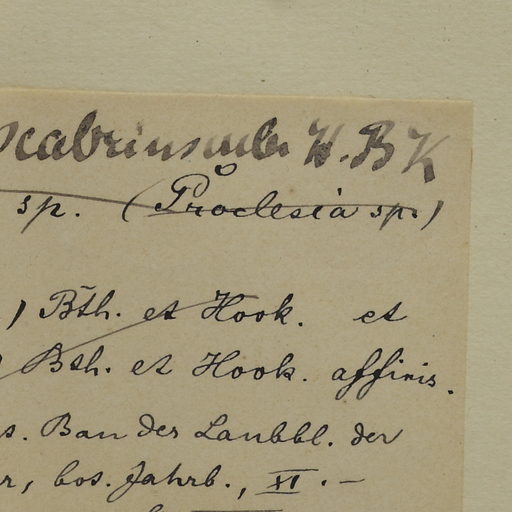 scabriuscula H. B K
sp. (Proclesia sp.)
) Bth. et Hook. et
Bth. et Hook. affinis.
s. Bau der Laubbl. der
r, bos. Jahrb., XI. —